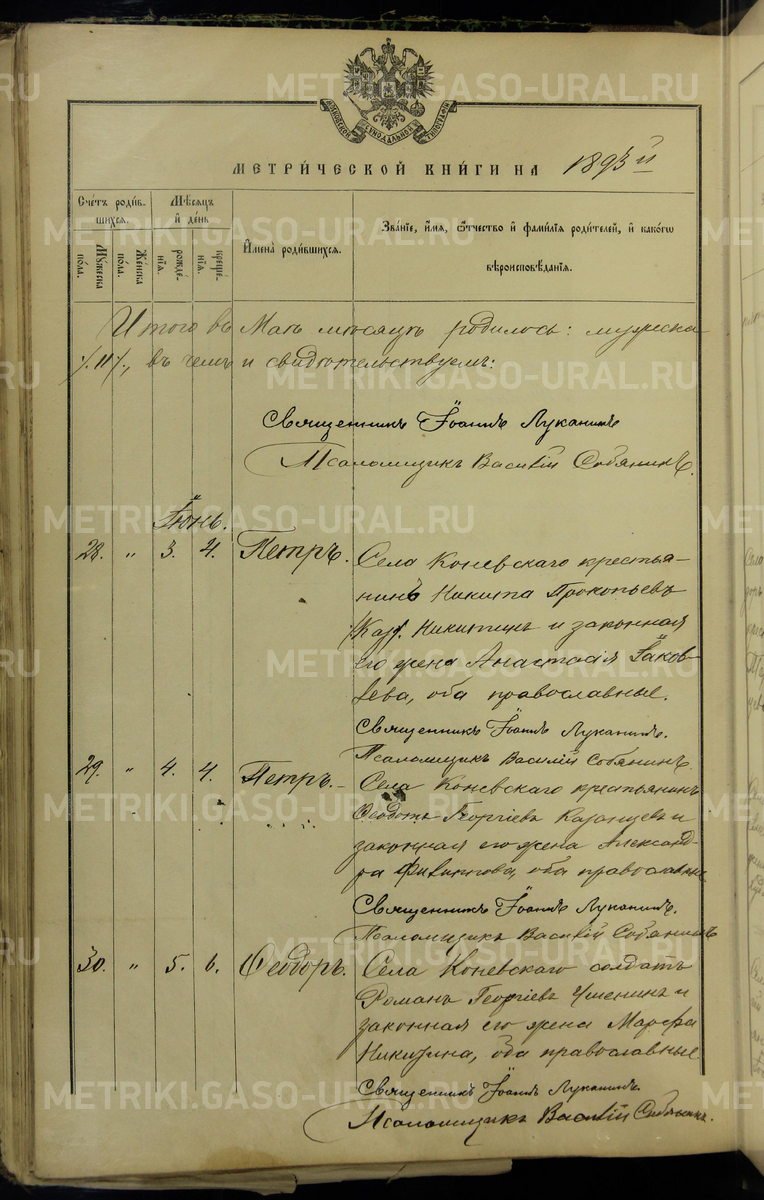 МОСКОВСКОЙ СѴНОДАЛЬНОЙ ТИПОГРАФІИ
МЕТРИ́ЧЕСКОЙ КНИ́ГИ НА 1893 й
Счетъ роди́в-
шихся.
Мѣсяцъ
и день
Му́жеска
по́ла.
Же́нска
по́ла.
рожде́-
нія.
креще́-
нія.
Имена̀ роди́вшихся.
Зва́ніе, и́мя, о́тчество и фами́лія роди́телей, и како́гѡ
вѣроисповѣ́данія.
Итого въ Маѣ мѣсяцѣ родилось: мужеска
/.11/., въ чемъ и свидѣтельствуемъ:
Священникъ Іоаннъ Луканинъ
Псаломщикъ Василій Собянинъ.
Іюнь.
28. „ 3. 4. Петръ. Села Коневскаго крестья-
нинъ Никита Прокопьевъ
Никитинъ и законная
его жена Анастасія Іаков-
лева, оба православные.
Священникъ Іоаннъ Луканинъ.
Псаломщикъ Василій Собянинъ
29. „ 4. 4. Петръ. Села Коневскаго крестьянинъ
Ѳеодотъ Георгіевъ Казанцевъ и
законная его жена Александ-
ра Филиппова, оба православные
Священникъ Іоаннъ Луканинъ.
Псаломщикъ Василій Собянинъ
30. „ 5. 6. Ѳеодоръ. Села Коневскаго солдатъ
Романъ Георгіевъ и
законная его жена Марѳа
Никитина, оба православные
Священникъ Іоаннъ Луканинъ.
Псаломщикъ Василій Собянинъ.
METRIKI.GASO-URAL.RU